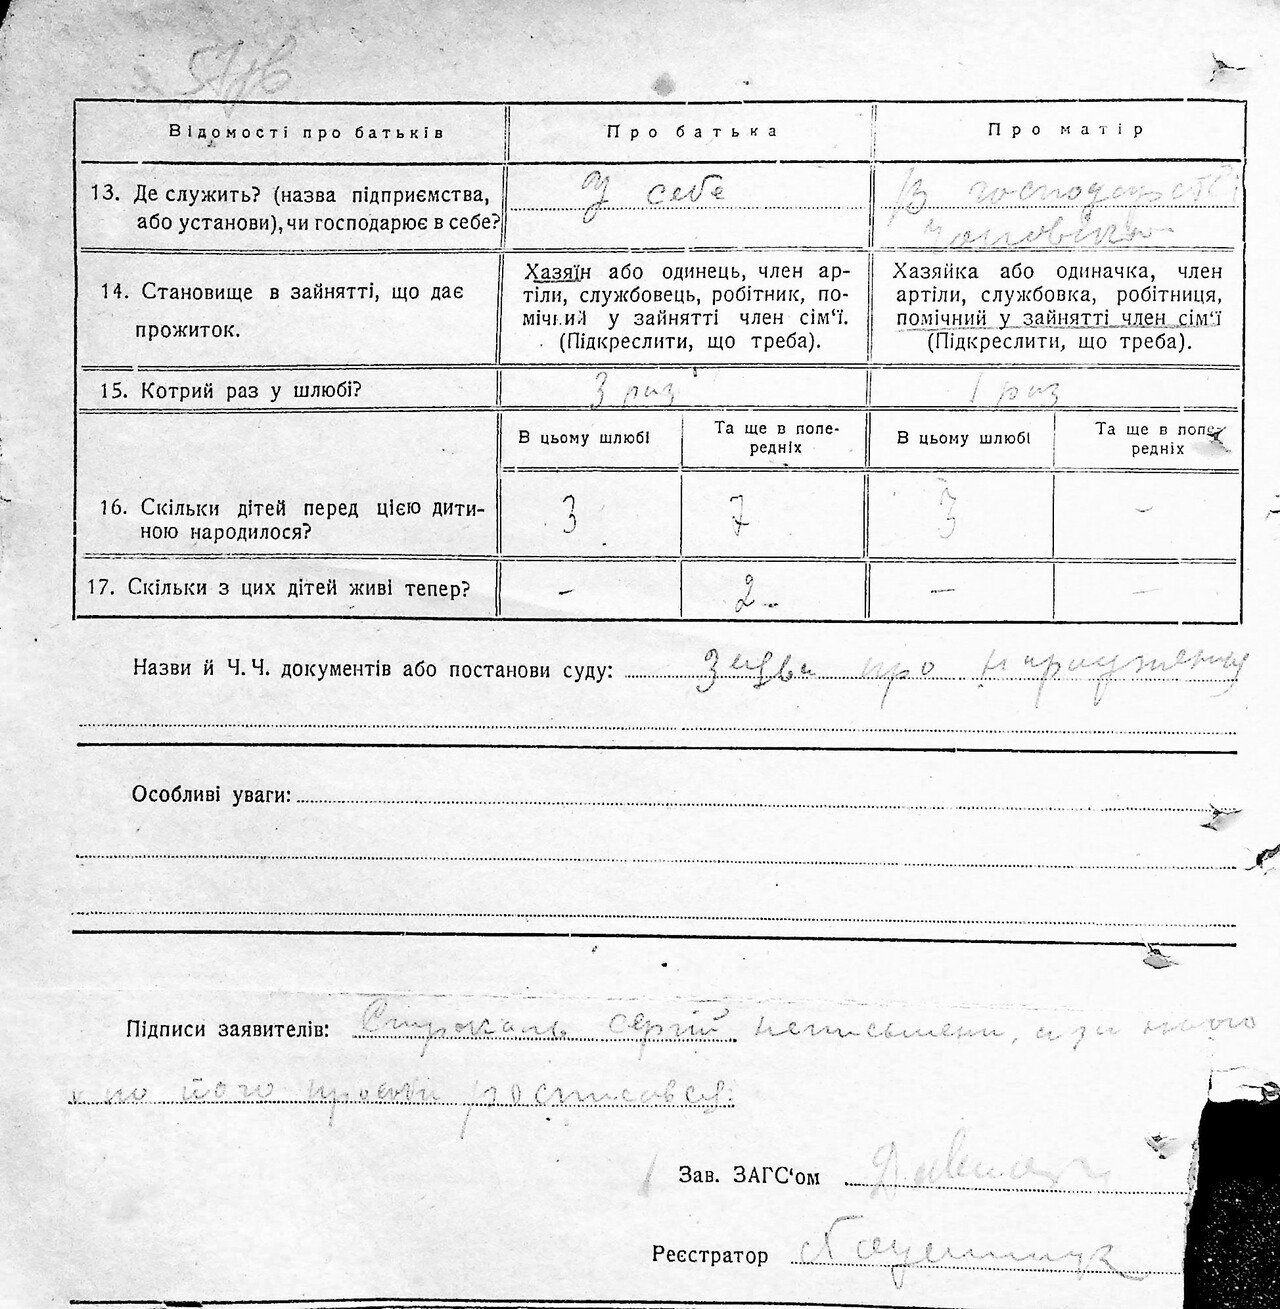 Відомості про батьків
Про батька
Про матір
13. Де служить? (назва підприємства,
або установи), чи господарює в себе?
У себе
В господарстві
чоловіка
14. Становище в зайнятті, що дає
прожиток.
Хазяїн або одинець, член ар-
тіли, службовець, робітник, по-
мічний у зайнятті член сім'ї.
(Підкреслити, що треба).
Хазяйка або одиначка, член
артіли, службовка, робітниця,
помічний у зайнятті член сім'ї
(Підкреслити, що треба).
15. Котрий раз у шлюбі?
3 раз
1 раз
В цьому шлюбі
Та ще в попе-
редніх
В цьому шлюбі
Та ще в попе-
редніх
16. Скільки дітей перед цією дити-
ною народилося?
3
7
3
-
17. Скільки з цих дітей живі тепер?
-
2
-
-
Назви й Ч. Ч. документів або постанови суду: Заява про народження
Особливі уваги:
Підписи заявителів: Сергій неписьмени, а за нього
по його просьбі росписався:
Зав. ЗАГС'ом
Реєстратор